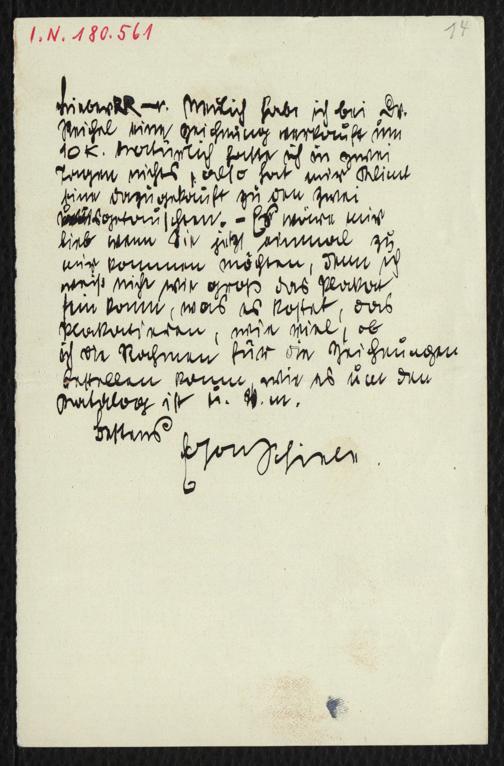 I.N. 180.561
14
Lieber RR – r. Neulich habe ich bei Dr.
Reichel eine Zeichnung verkauft um
10 K. Natürlich hatte ich in zwei
Tagen nichts, also hat mir Klimt
eine dazugekauft zu den zwei
ausgetauschten. – Es wäre mir
lieb wenn Sie jetzt einmal zu
mir kommen möchten, denn ich
weiß nicht wie groß das Plakat
sein kann, was es kostet, das
Plakatieren, wie viel, ob
ich die Rahmen für die Zeichnungen
bestellen kann, wie es um den
Katalog ist u. s. w.
Bestens
Egon Schiele.